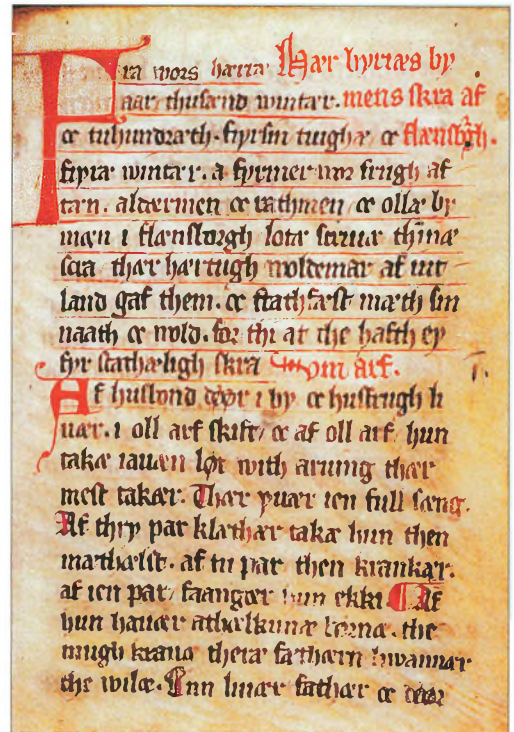 Fra wors hærræ Hær byriæs by
aar thusænd wintær. mens skra af
oc tuhundræth. fiyrsin tiughæ oc flænsbgh.
fiyræ wintær. a fyrmer
tan. aldermen oc rathmen oc ollæ by
mæn i flænsborgh lotæ scriuæ thinæ
scra thær hærtugh woldemar af iut
land gaf them. oc stathfæst mæth sin
naath oc wold. for thi at the hafth ey
fyr stathæligh skra Wm arf.
Af husbond dør i by oc husfrugh li
uær. i oll arf skift oc af oll arf hun
takæ iauæn løt with aruing thær
mest takær. Thær yuær ien full sæng.
Af thry par klæthær takæ hun then
mæthælst. af tu par then krankær.
af ien par faangær hun ekki Af
hun hauær athælkunæ børnæ. the
mugh krauæ theræ fæthærn hwannær
the wilæ. Ænn liuær fathær oc døør